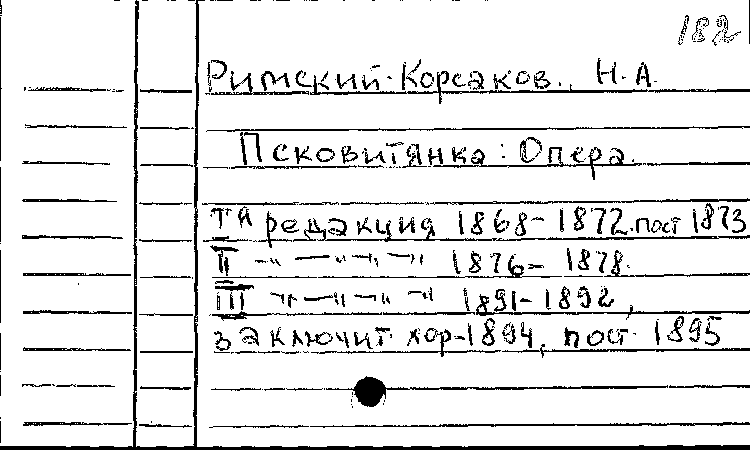 182
Римский-Корсаков., Н.А.
Псковитянка: Опера.
I я редакция 1868-1872. пост 1873
II -"- -"-"- -"- 1876- 1878.
III -"- -"-"- -"- 1891-1892,
заключит. хор-1894, пост. 1895